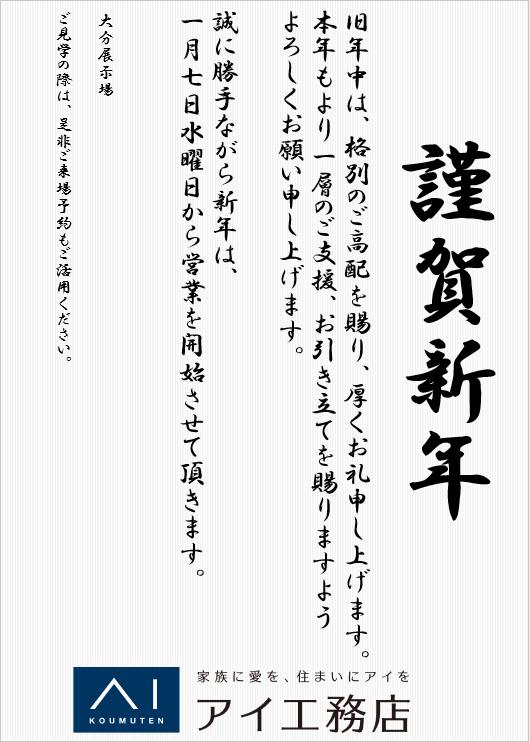 謹賀新年
旧年中は、格別のご高配を賜り、厚くお礼申し上げます。
本年もより一層のご支援、お引き立てを賜りますよう
よろしくお願い申し上げます。
誠に勝手ながら新年は、
一月七日水曜日から営業を開始させて頂きます。
大分展示場
ご見学の際は、是非ご来場予約もご活用ください。
AI
KOUMUTEN
家族に愛を、住まいにアイを
アイ工務店